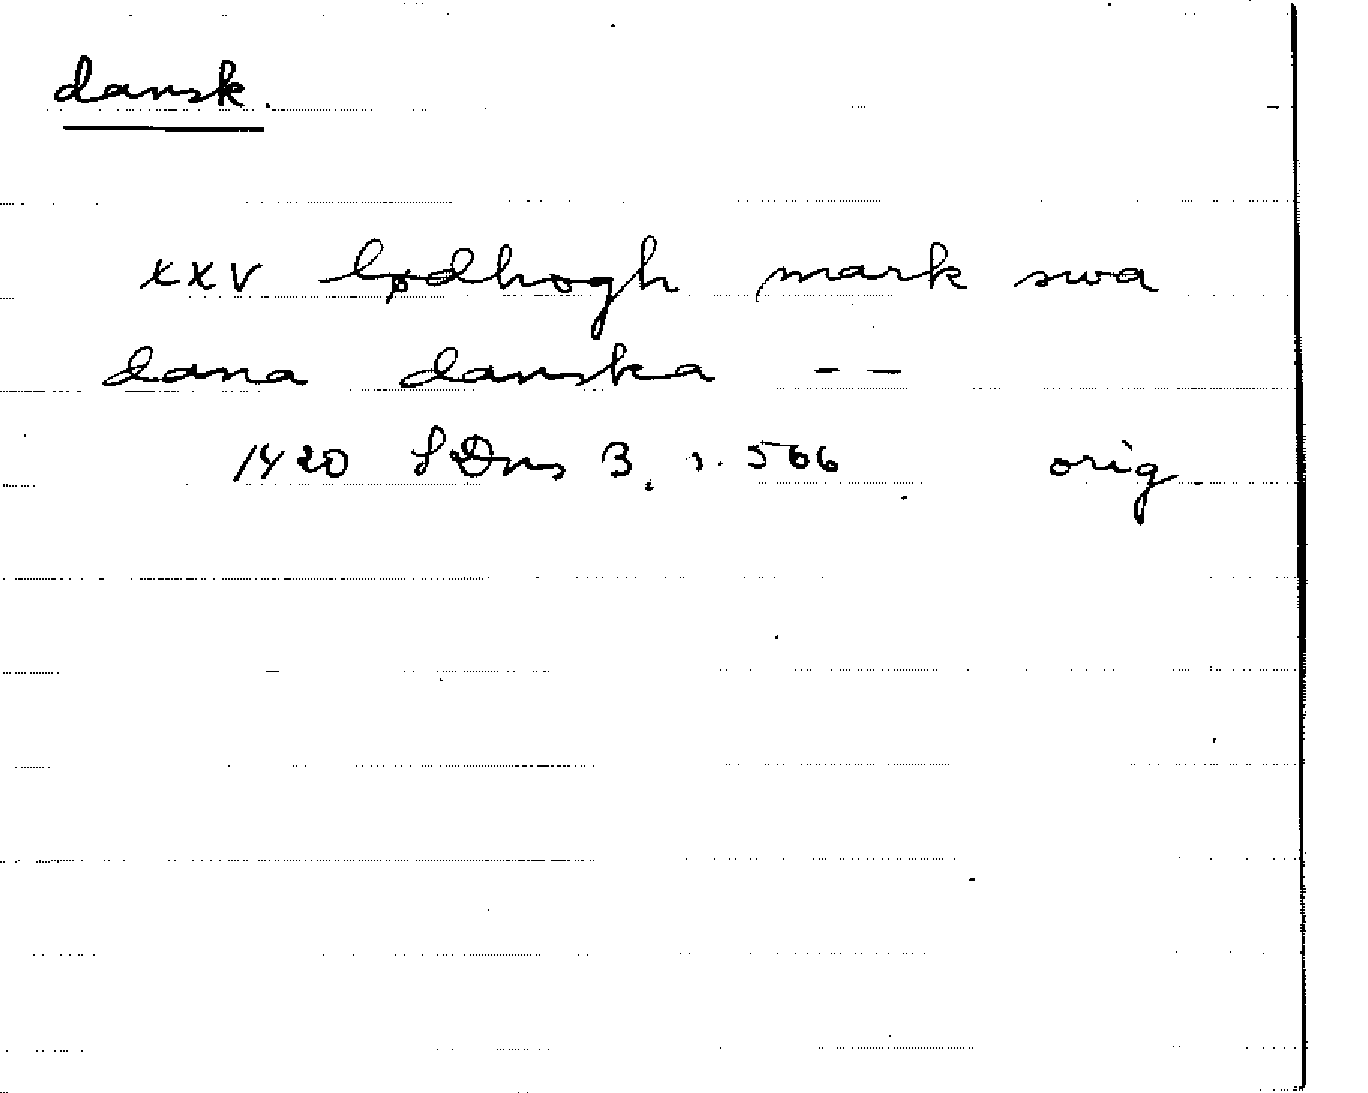 dansk.
xxv lødhogh mark swa
dana danska - -
1420 SDns 3, s. 566 orig